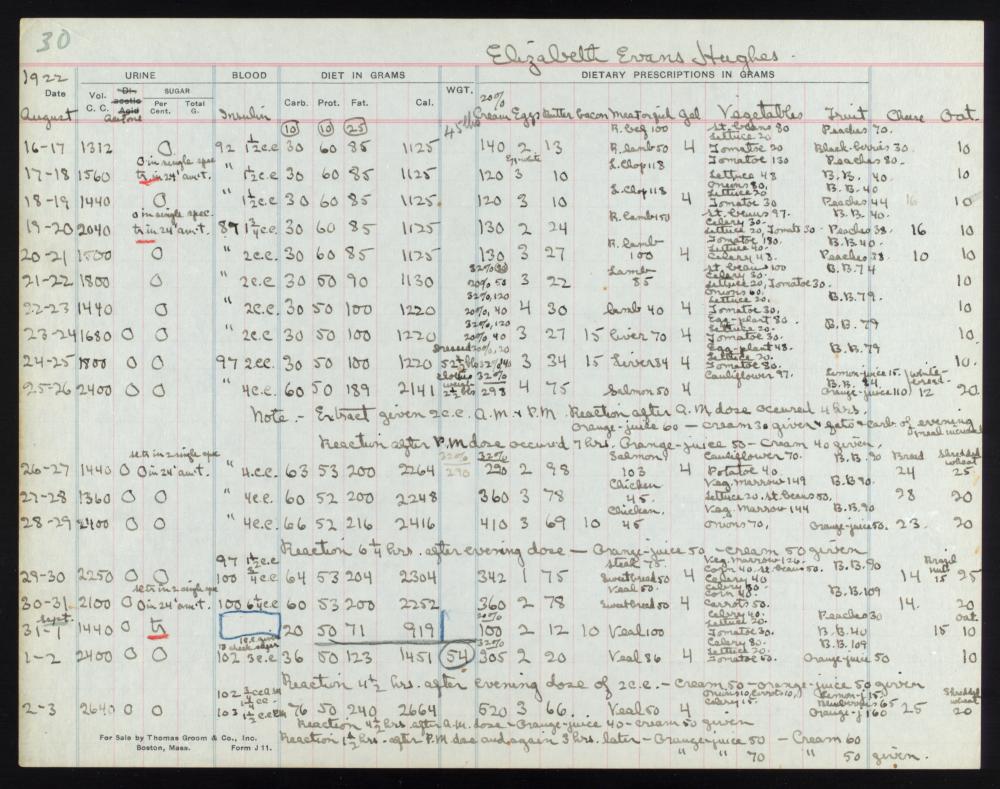 30
Elizabeth Evans Hughes.
1922 URINE BLOOD DIET IN GRAMS WGT. DIETARY PRESCRIPTIONS IN GRAMS
Date Vol. C. C. Di-acetic Acid Acetone SUGAR Per Cent. Total G. Insulin Carb. Prot. Fat. Cal. 20% Cream Eggs Butter bacon Meat or fish gel Vegetables Fruit Oat
August (10) (10) (25) 45 lbs R. beef 100 St. beans 80 Peaches 70.
Lettuce 20
16-17 1312 0 92 1½ c.c. 30 60 85 1125 140 2 13 R. lamb 50 4 Tomatoe 20 Black-berries 30. 10
0 in single spec. Egg-white L. Chop 118 Tomatoe 130 Peaches 80.
17-18 1560 tr. in 24° am't. " 1½ c.c. 30 60 85 1125 120 3 10 Lettuce 48 B.B. 40. 10
Onions 80,
L. Chop 118 Lettuce 20 B.B. 40
18-19 1440 0 " 1½ c.c. 30 60 85 1125. 120 3 10 4 Tomatoe 30 Peaches 44 16 10
0 in single spec. R. lamb 150 St. beans 97. B.B. 40.
Celery 30.
19-20 2040 tr. in 24° am't. 89 1¾ c.c. 30 60 85 1125 130 2 24 Lettuce 20, Tomato 30. Peaches 38. 16 10
R. lamb Tomatoe 130. B.B. 40.
Lettuce 40.
20-21 1500 0 " 2 c.c. 30 60 85 1125 130 3 27 100 4 Celery 48. Peaches 38. 10 10
Lamb St. beans 100 B.B. 74
Celery 30.
21-22 1800 0 " 2 c.c. 30 50 90 1130 20% 50 3 22 85 Lettuce 20, Tomatoe 30. 10
32%, 120 Onions 60.
Lettuce 20. B.B. 79.
22-23 1440 0 " 2 c.c. 30 50 100 1220 20%, 40 4 30 Lamb 40 4 Tomatoe 30. 10
32%, 120 Egg-plant 80. B.B. 79
Lettuce 20.
23-24 1680 0 0 " 2 c.c. 30 50 100 1220 20%, 40 3 27 15 Liver 70 4 Tomatoe 30. 10
Dressed Egg-plant 48. B.B. 79
Lettuce 20.
24-25 1800 0 0 97 2 c.c. 30 50 100 1220 52½ lbs 3 34 15 Liver 34 4 Tomatoe 80. 10.
clothes 32% Cauliflower 97. Lemon-juice 15. White-bread.
weigh B.B. 84
25-26 2400 0 0 " 4 c.c. 60 50 189 2141 2½ lbs 298 4 75 Salmon 50 4 Orange-juice 110 12 20
Note.- Extract given 2 c.c. A.M. & P.M. Reaction after A.M. dose occured 4 hrs.
Orange-juice 60 - cream 30 given & fats & carb. of evening meal increased
Reaction after P.M. dose occured 7 hrs. Orange-juice 50 - Cream 40 given.
0 in single spec 32% 32% Salmon Cauliflower 70. B.B. 90 Bread Shredded wheat
26-27 1440 0 0 in 24° am't. " 4 c.c. 63 53 200 2264 290 290 2 98 103 4 Potatoe 40. 24 25
Chicken Veg. marrow 149 B.B. 90.
27-28 1360 0 0 " 4 c.c. 60 52 200 2248 360 3 78 45. Lettuce 20. St. beans 50. 28 20
Chicken. Veg. Marrow 144 B.B. 90
28-29 2400 0 0 " 4 c.c. 66 52 216 2416 410 3 69 10 45 Onions 70, Orange-juice 50. 23. 20
Reaction 6¼ hrs. after evening dose - Orange-juice 50 - cream 50 given
97 1½ c.c. Steak 75. Veg. Marrow 126. Brazil nut
Corn 40. St. beans 50. B.B. 90
29-30 2250 0 0 100 4 c.c. 64 53 204 2304 342 1 75 Sweetbread 50 4 Celery 40 14 15 25
0 in single spec Veal 50. Celery 30. B.B. 109
Corn 40.
30-31 2100 0 0 in 24° am't. 100 6½ c.c. 60 53 200 2252 360 2 78 Sweetbread 50 4 Carrots 50. 14. 20
Sept. 20% Celery 40. Peaches 30 oat.
Lettuce 20.
31-1 1440 0 tr 20 50 71 919 100 2 12 10 Veal 100 Tomatoe 30. B.B. 40 15 10
32% Celery 80. B.B. 109
Lettuce 20.
1-2 2400 0 0 102 3 c.c. 36 50 123 1451 (54) 305 2 20 Veal 86 4 Tomatoe 50. Orange juice 50 10
Reaction 4½ hrs. after evening dose of 2 c.c. - Cream 50 - orange-juice 50 given
102 Onions 10, Carrots 10, Lemon-j 15. Shredded wheat
Celery 15. Blueberries 65
2-3 2640 0 0 103 76 50 240 2664 520 3 66. Veal 50 4 Orange-j 160 25 20
Reaction 4½ hrs. after A.M. dose - Orange-juice 40 - cream 50 given
Reaction 1½ hrs. after P.M. dose and again 3 hrs. later - Orange-juice 50 - Cream 60
" " 70 " 50 given.
For Sale by Thomas Groom & Co., Inc.
Boston, Mass. Form J 11.